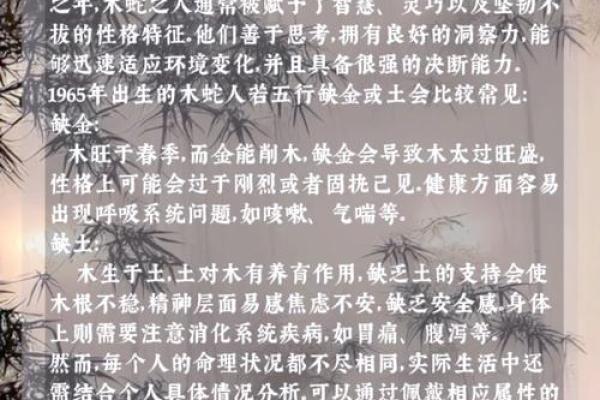 之年,木蛇之人通常被赋予了智慧、灵巧以及坚韧不
拔的性格特征.他们善于思考,拥有良好的洞察力,能
够迅速适应环境变化.并且具备很强的决断能力.
1965年出生的木蛇人若五行缺金或土会比较常见:
缺金:
木旺于春季,而金能削木,缺金会导致木太过旺盛,
性格上可能会过于刚烈或者固执己见.健康方面容易
出现呼吸系统问题,如咳嗽、气喘等.
缺土:
木生于土,土对木有养育作用,缺乏土的支持会使
木根不稳,精神层面易感焦虑不安,缺乏安全感.身体
上则需要注意消化系统疾病,如胃痛、腹泻等.
然而,每个人的命理状况都不尽相同,实际生活中还
需结合个人具体情况分析.可以通过佩戴相应属性的